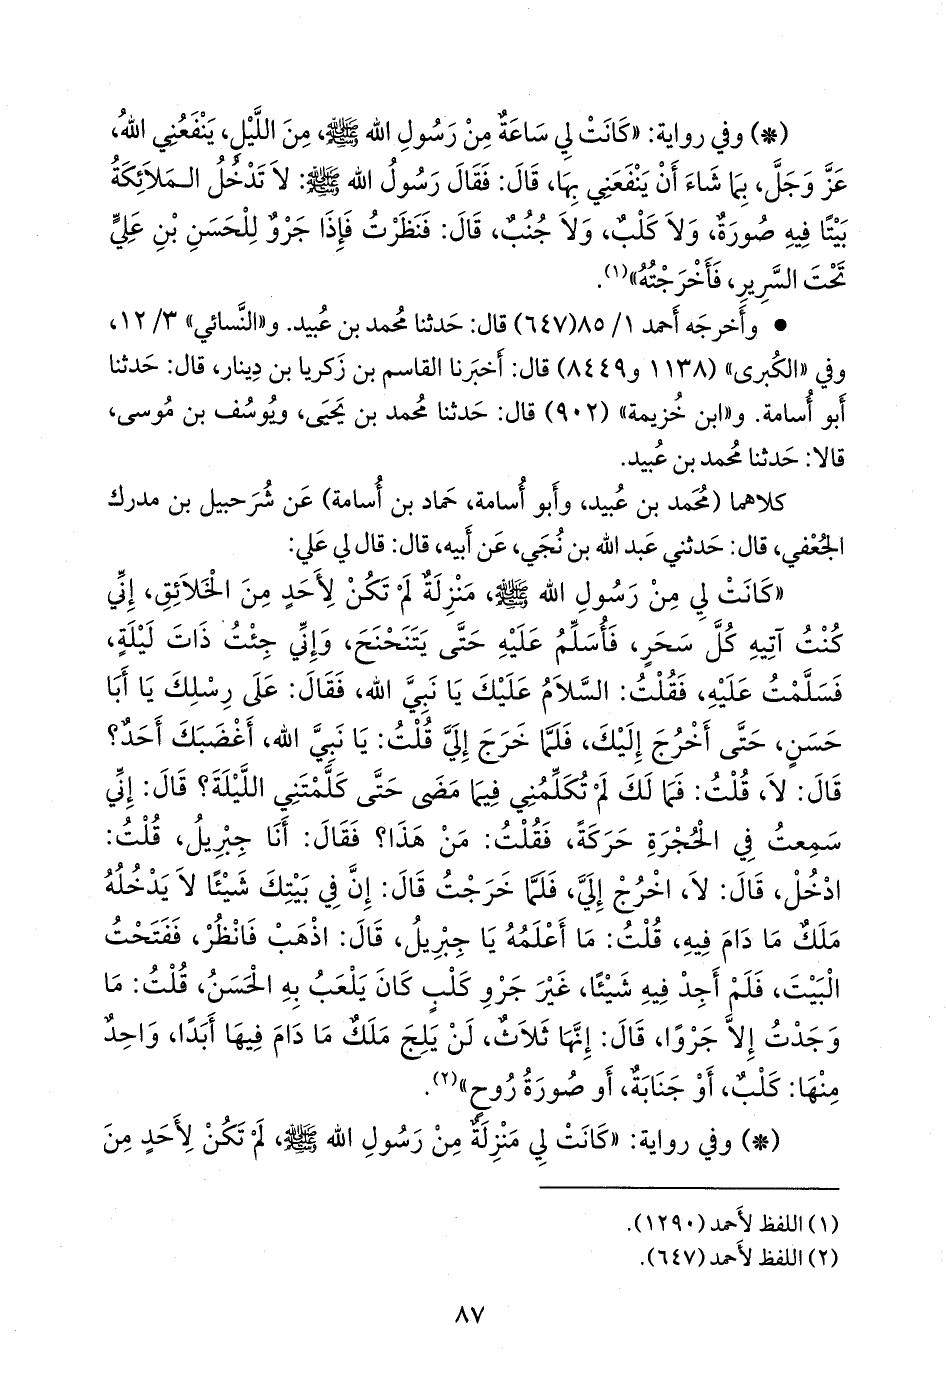 (*) وفي رواية: «كَانَتْ لِي سَاعَةٌ مِنْ رَسُولِ الله ﷺ، مِنَ اللَّيْلِ، يَنْفَعُنِي اللهُ،
عَزَّ وَجَلَّ، بِمَا شَاءَ أَنْ يَنْفَعَنِي بِهَا، قَالَ: فَقَالَ رَسُولُ الله ﷺ: لاَ تَدْخُلُ الـمَلاَئِكَةُ
بَيْتًا فِيهِ صُورَةٌ، وَلاَ كَلْبٌ، وَلاَ جُنُبٌ، قَالَ: فَنَظَرْتُ فَإِذَا جَرْوٌ لِلْحَسَنِ بْنِ عَلِيٍّ
تَحْتَ السَّرِيرِ، فَأَخْرَجْتُهُ»(١).
• وأَخرجَه أَحمد ١/ ٨٥(٦٤٧) قال: حَدثنا مُحمد بن عُبيد. و«النَّسائي» ٣/ ١٢،
وفي «الكُبرى» (١١٣٨ و٨٤٤٩) قال: أَخبَرنا القاسم بن زَكريا بن دِينار، قال: حَدثنا
أَبو أُسامة. و«ابن خُزيمة» (٩٠٢) قال: حَدثنا مُحمد بن يَحيَى، ويُوسُف بن مُوسى،
قالا: حَدثنا مُحمد بن عُبيد.
كلاهما (مُحَمد بن عُبيد، وأَبو أُسامة، حَماد بن أُسامة) عَن شُرَحبيل بن مدرك
الجُعْفي، قال: حَدثني عَبد الله بن نُجَي، عَن أَبيه، قال: قال لي عَلي:
«كَانَتْ لِي مِنْ رَسُولِ الله ﷺ، مَنْزِلَةٌ لَمْ تَكُنْ لِأَحَدٍ مِنَ الْخَلاَئِقِ، إِنِّي
كُنْتُ آتِيهِ كُلَّ سَحَرٍ، فَأُسَلِّمُ عَلَيْهِ حَتَّى يَتَنَحْنَحَ، وَإِنِّي جِئْتُ ذَاتَ لَيْلَةٍ،
فَسَلَّمْتُ عَلَيْهِ، فَقُلْتُ: السَّلاَمُ عَلَيْكَ يَا نَبِيَّ الله، فَقَالَ: عَلَى رِسْلِكَ يَا أَبَا
حَسَنٍ، حَتَّى أَخْرُجَ إِلَيْكَ، فَلَمَّا خَرَجَ إِلَيَّ قُلْتُ: يَا نَبِيَّ الله، أَغْضَبَكَ أَحَدٌ؟
قَالَ: لاَ، قُلْتُ: فَمَا لَكَ لَمْ تُكَلِّمْنِي فِيمَا مَضَى حَتَّى كَلَّمْتَنِي اللَّيْلَةَ؟ قَالَ: إِنِّي
سَمِعتُ فِي الْحُجْرَةِ حَرَكَةً، فَقُلْتُ: مَنْ هَذَا؟ فَقَالَ: أَنَا جِبْرِيلُ، قُلْتُ:
ادْخُلْ، قَالَ: لاَ، اخْرُجْ إِلَيَّ، فَلَمَّا خَرَجْتُ قَالَ: إِنَّ فِي بَيْتِكَ شَيْئًا لاَ يَدْخُلُهُ
مَلَكٌ مَا دَامَ فِيهِ، قُلْتُ: مَا أَعْلَمُهُ يَا جِبْرِيلُ، قَالَ: اذْهَبْ فَانْظُرْ، فَفَتَحْتُ
الْبَيْتَ، فَلَمْ أَجِدْ فِيهِ شَيْئًا، غَيْرَ جَرْوِ كَلْبٍ كَانَ يَلْعَبُ بِهِ الْحَسَنُ، قُلْتُ: مَا
وَجَدْتُ إِلاَّ جَرْوًا، قَالَ: إِنَّهَا ثَلاَثٌ، لَنْ يَلِجَ مَلَكٌ مَا دَامَ فِيهَا أَبَدًا، وَاحِدٌ
مِنْهَا: كَلْبٌ، أَوْ جَنَابَةٌ، أَو صُورَةُ رُوحٍ»(٢).
(*) وفي رواية: «كَانَتْ لِي مَنْزِلَةٌ مِنْ رَسُولِ الله ﷺ، لَمْ تَكُنْ لِأَحَدٍ مِنَ
(١) اللفظ لأَحمد (١٢٩٠).
(٢) اللفظ لأَحمد (٦٤٧).
٨٧